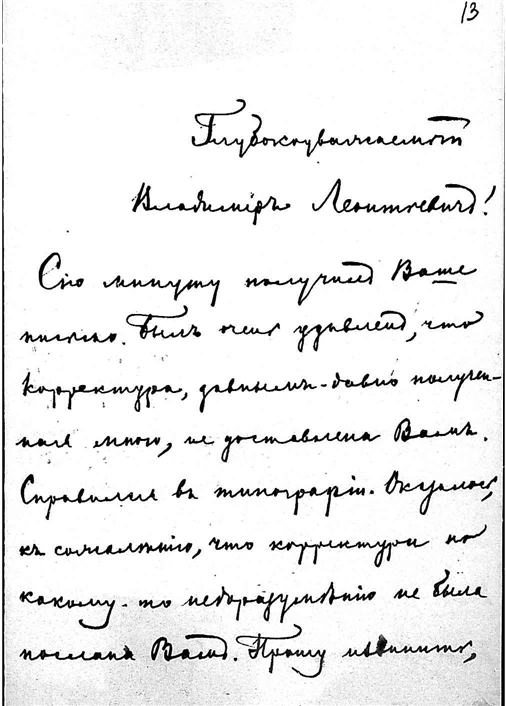 13
Глубокоуважаемый
Владиміръ Леонтьевичъ!
Сію минуту получилъ Ваше
письмо. Былъ очень удивленъ, что
корректура, давнымъ-давно получен-
ная мною, не доставлена Вамъ.
Справился въ типографіи. Оказалось,
къ сожалѣнію, что корректура по
какому-то недоразумѣнію не была
послана Вамъ. Прошу извинить,